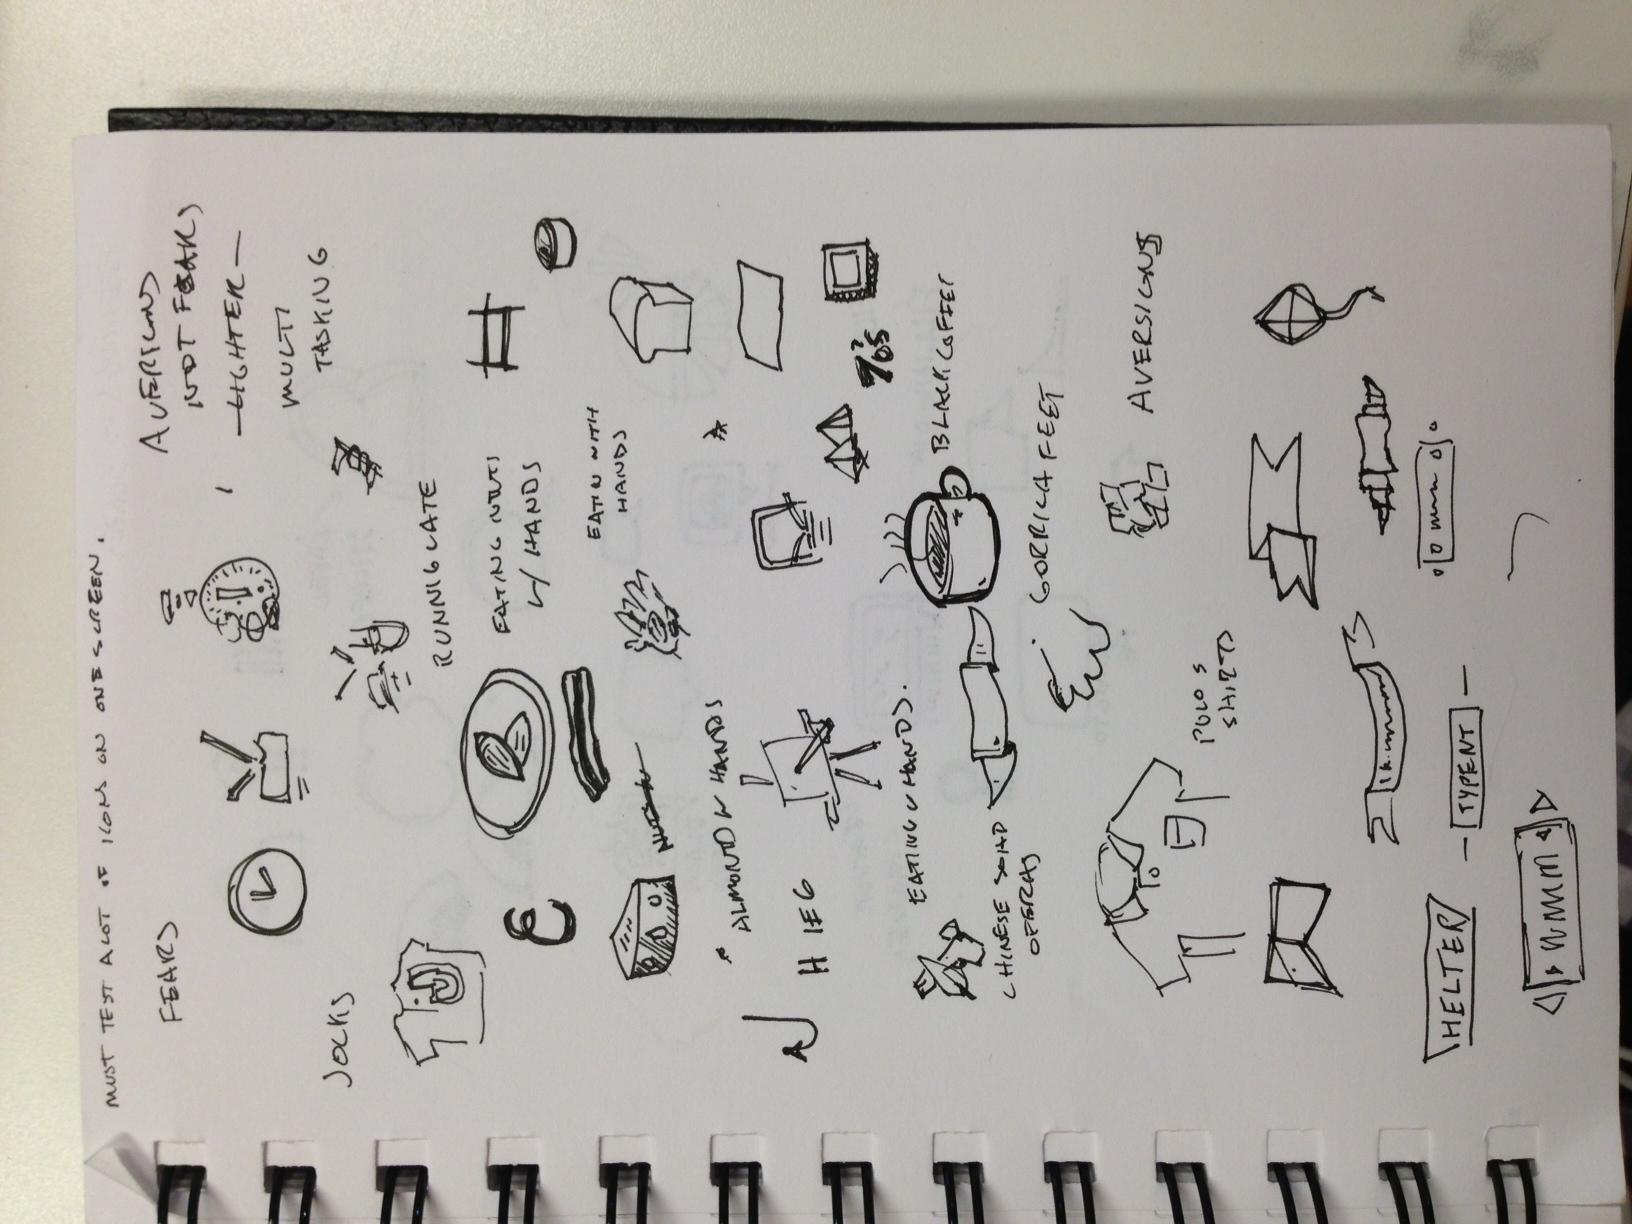 MUST TEST A LOT OF ICONS ON ONE SCREEN.
FEARS
AVERIONS
NOT FEARS
— LIGHTER —
MULTI
TASKING
JOCKS
RUNNIG LATE
EATING NUTS
W/ HANDS
EATIN WITH
HANDS
ALMOND W HANDS
H IEG
EATING W HANDS.
BLACK COFFEE
CHINESE SOAP
OPPERAS
GORRILA FEET
AVERSIONS
POLO S
SHIRTS
HELTER
— TYPENT —